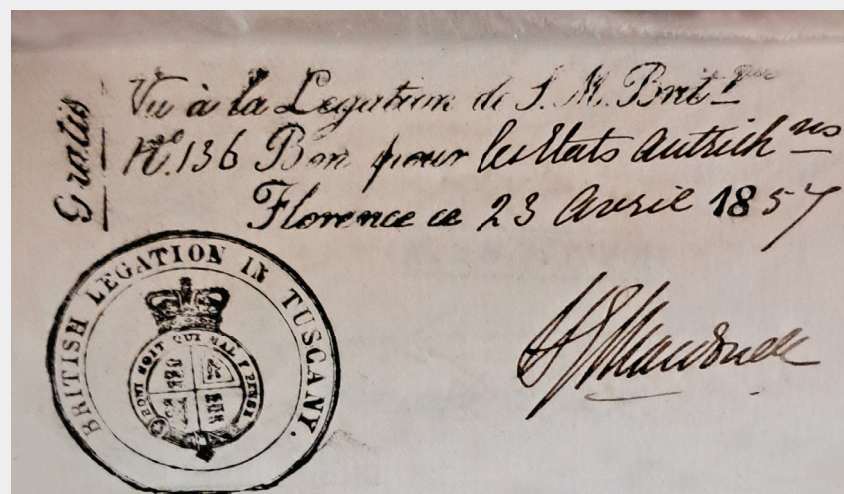 Gratis
Vu à la Legation de S. M. Brit.que
No. 136 Bon pour les Etats Autrich.ns
Florence ce 23 Avril 1857
BRITISH LEGATION IN TUSCANY.
HONI SOIT QUI MAL Y PENSE